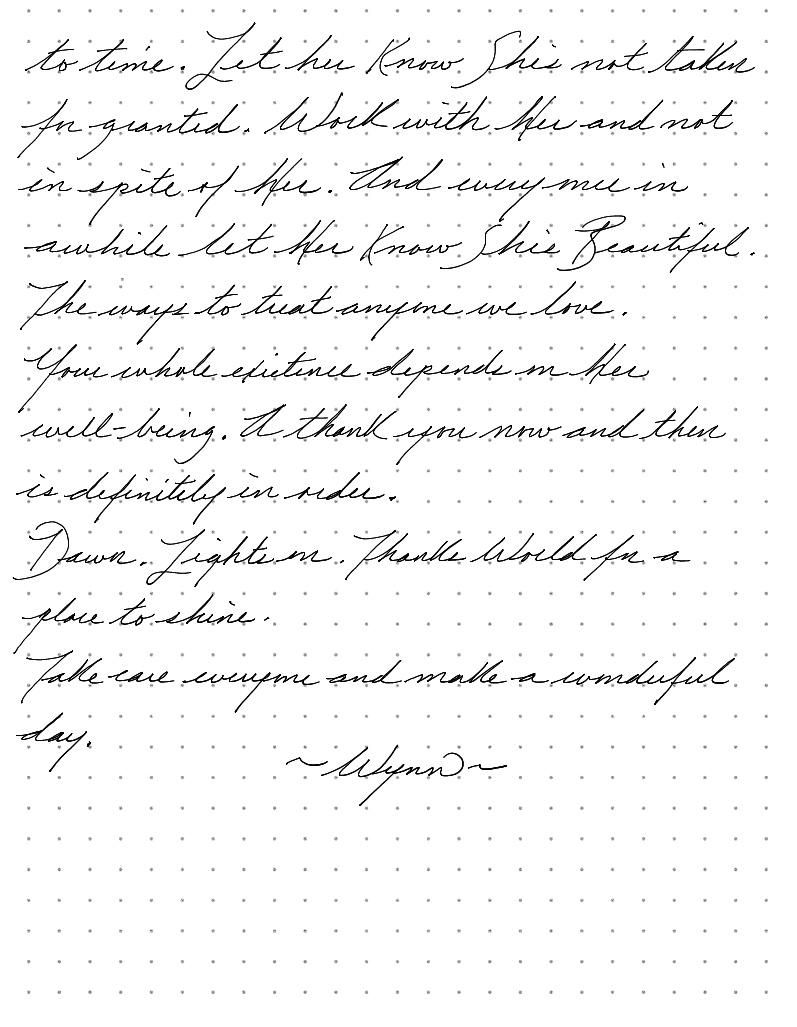 to time. Let her Know She's not taken
for granted. Work with Her and not
in spite of Her. And every once in
awhile let Her Know She's Beautiful.
The ways to treat anyone we love.
Your whole existence depends on Her
well-being. A thank you now and then
is definitely in order.
Dawn. Lights on. Thanks World for a
place to shine.
Take care everyone and make a wonderful
day.
~Wynn~